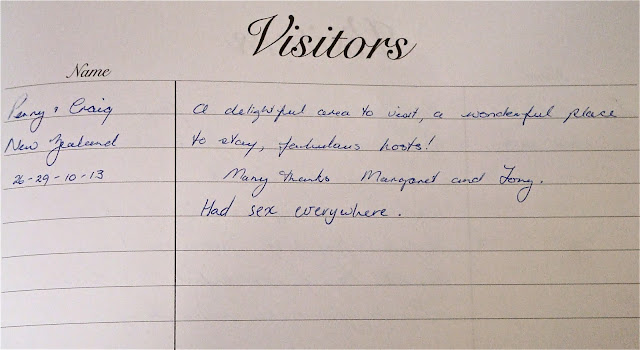 Visitors
Name
Penny & Craig
New Zealand
26-29-10-13
A delightful area to visit, a wonderful place
to stay, fabulous hosts!
Many thanks Margaret and Tony.
Had sex everywhere.